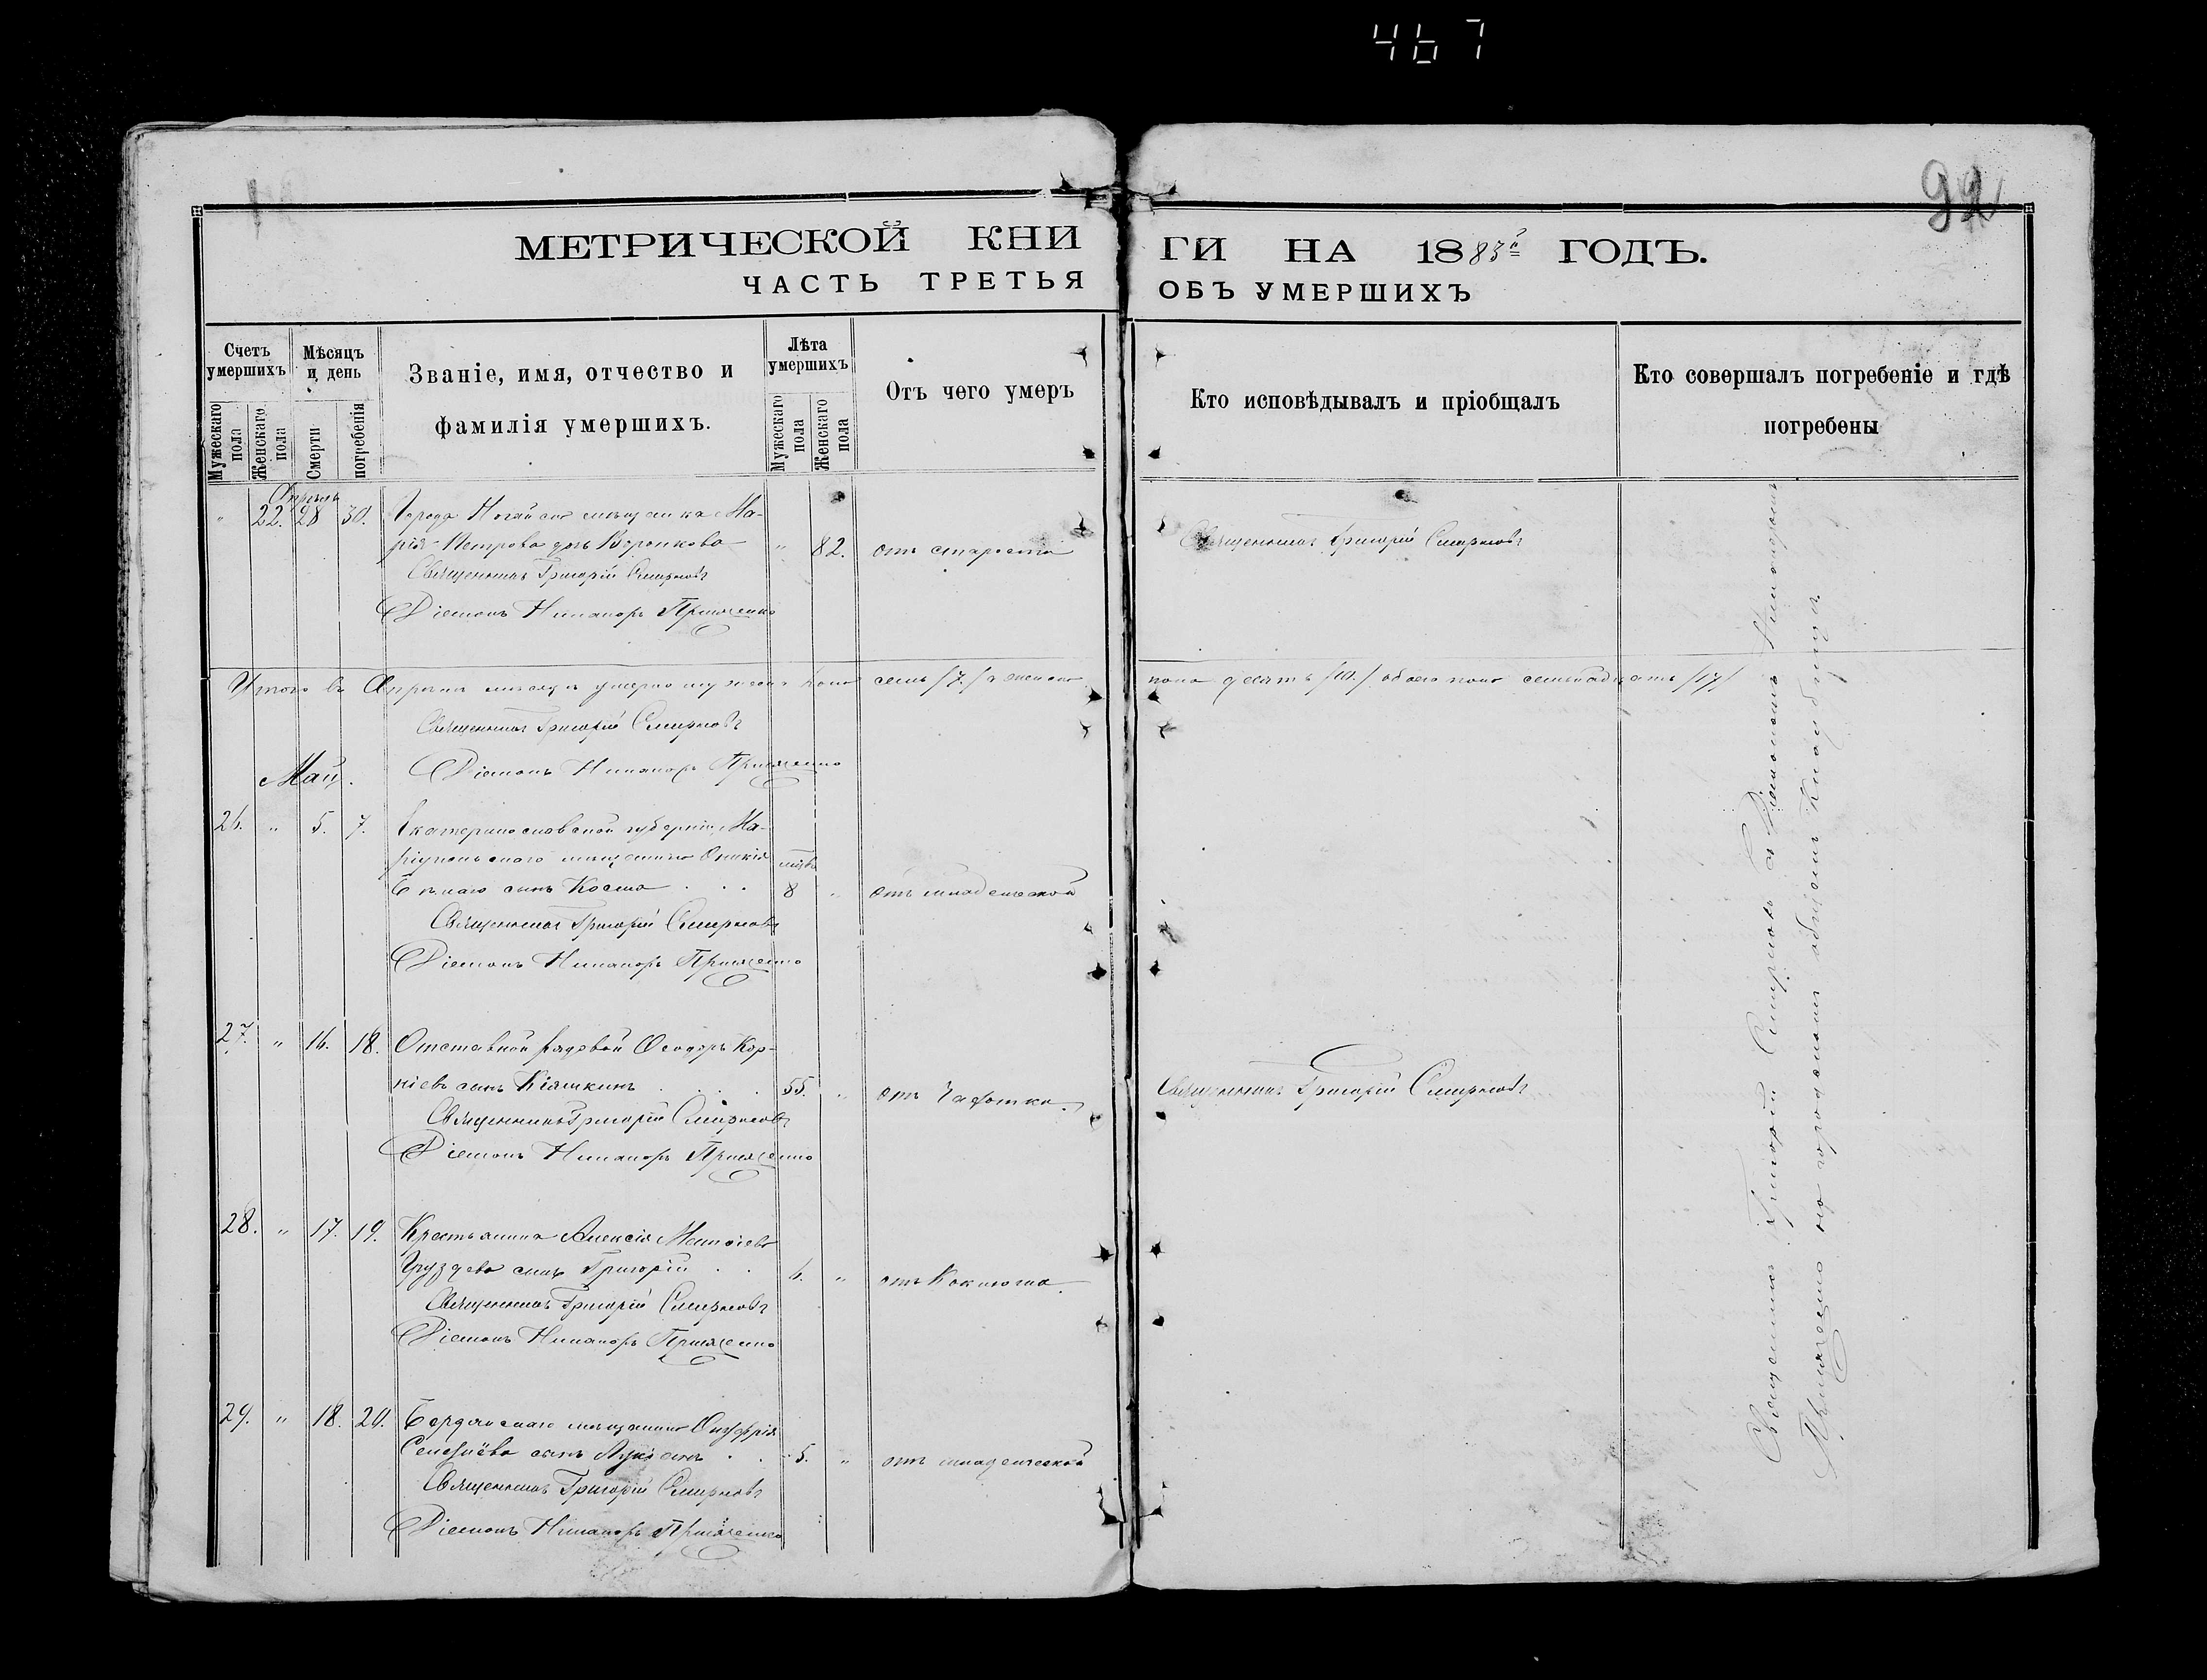 467
92
МЕТРИЧЕСКОЙ КНИ
ГИ НА 1883й ГОДЪ.
ЧАСТЬ ТРЕТЬЯ
ОБЪ УМЕРШИХЪ
Счетъ умершихъ
Мужескаго пола
Женскаго пола
Мѣсяцъ и день
Смерти
погребенія
Званіе, имя, отчество и
фамилія умершихъ.
Лѣта умершихъ
Мужескаго пола
Женскаго пола
Отъ чего умеръ
Кто исповѣдывалъ и пріобщалъ
Кто совершалъ погребеніе и гдѣ
погребены
Апрель
" 22. 28 30. Города Ногайска мѣщанка Ма-
рія Петрова дочь Воронкова " 82. отъ старости Священникъ Григорій Смирновъ
Священникъ Григорій Смирновъ
Діаконъ Никаноръ
Итого въ Апрѣлѣ мѣсяцѣ умерло мужеска пола семь /7/ а женска пола десять /10/ обоего пола семьнадцать /17/
Священникъ Григорій Смирновъ
Май.
Діаконъ Никаноръ
26. " 5. 7. Екатеринославской губерніи, Ма-
ріупольскаго мѣщанина мцвъ
сынъ Косма . . . 8 " отъ младенческой
Священникъ Григорій Смирновъ
Діаконъ Никаноръ
27. " 16. 18. Отставной рядовой Ѳеодоръ Кор-
ніевъ сынъ Кіяшкинъ . . . 55. " отъ Чахотки. Священникъ Григорій Смирновъ
Священникъ Григорій Смирновъ
Діаконъ Никаноръ
28. " 17. 19. Крестьянина Алексія
Груздева сынъ Григорій . . 6. " отъ Коклюша.
Священникъ Григорій Смирновъ
Діаконъ Никаноръ
29. " 18. 20. Бердянскаго мѣщанина Онуфрія
сынъ Лукіанъ . . 5. " отъ младенческой
Священникъ Григорій Смирновъ
Діаконъ Никаноръ
Священникъ Григорій Смирновъ съ Діакономъ Никаноромъ
на городскомъ общемъ кладбищѣ.